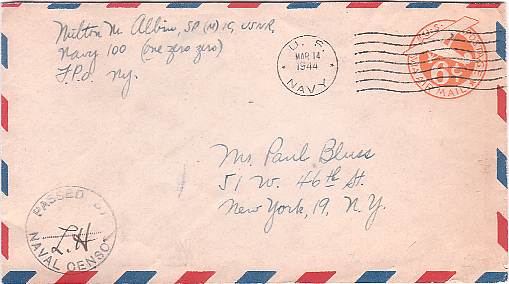 Milton M. Albin, SP (M) 1C, USNR.
Navy 100 (one zero zero)
F.P.O. Ny.
U. S.
MAR 14
1944
NAVY
U.S. POSTAGE
6¢
VIA AIR MAIL
Mr. Paul Bluss
51 W. 46th St.
New York, 19, N.Y.
PASSED BY
L.H
NAVAL CENSOR